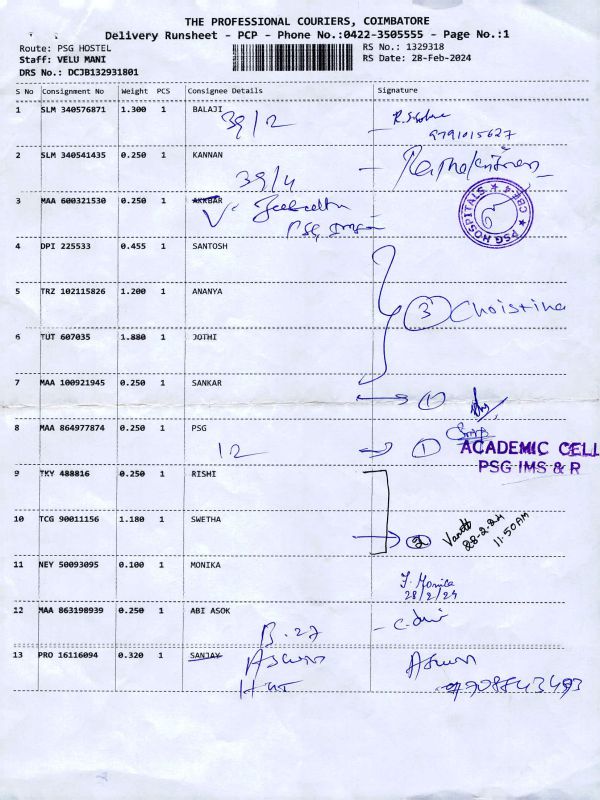 THE PROFESSIONAL COURIERS, COIMBATORE
Delivery Runsheet - PCP - Phone No.:0422-3505555 - Page No.:1
Route: PSG HOSTEL
RS No.: 1329318
Staff: VELU MANI
RS Date: 28-Feb-2024
DRS No.: DCJB132931801
S No Consignment No Weight PCS Consignee Details Signature
1 SLM 340576871 1.300 1 BALAJI
39/2
9791015627
2 SLM 340541435 0.250 1 KANNAN
39/4
3 MAA 600321530 0.250 1 AKKBAR
PSG
PSG HOSPITALS ★ CBE-4 ★
4 DPI 225533 0.455 1 SANTOSH
5 TRZ 102115826 1.200 1 ANANYA
3 Christina
6 TUT 607035 1.880 1 JOTHI
7 MAA 100921945 0.250 1 SANKAR
1
8 MAA 864977874 0.250 1 PSG
12
1
ACADEMIC CELL
PSG IMS & R
9 TKY 488816 0.250 1 RISHI
10 TCG 90011156 1.180 1 SWETHA
2
28-2-24
11:50AM
11 NEY 50093095 0.100 1 MONIKA
J. Monica
28/2/24
12 MAA 863198939 0.250 1 ABI ASOK
B.27
13 PRO 16116094 0.320 1 SANJAY